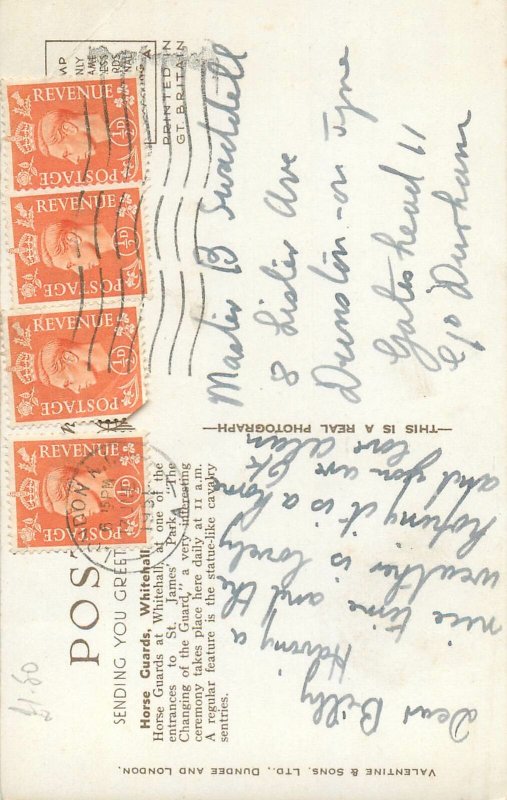 POS
SENDING YOU GREET
Horse Guards, Whitehall.
Horse Guards at Whitehall, at one of the
entrances to St. James' Park. The
Changing of the Guard," a very interesting
ceremony takes place here daily at 11 a.m.
A regular feature is the statue-like cavalry
sentries.
Dear Billy
Having a
nice time and the
weather is lovely
hoping it is a home
and you are Ok
love Alan
—THIS IS A REAL PHOTOGRAPH—
VALENTINE & SONS, LTD., DUNDEE AND LONDON.
PRINTED IN
GT. BRITAIN
Master B Swaddell
8 Lister Ave
Dunston-on-Tyne
Gateshead 11
C/o Durham
REVENUE
½D
POSTAGE
REVENUE
½D
POSTAGE
REVENUE
½D
POSTAGE
REVENUE
½D
POSTAGE
15 PM
£1.50